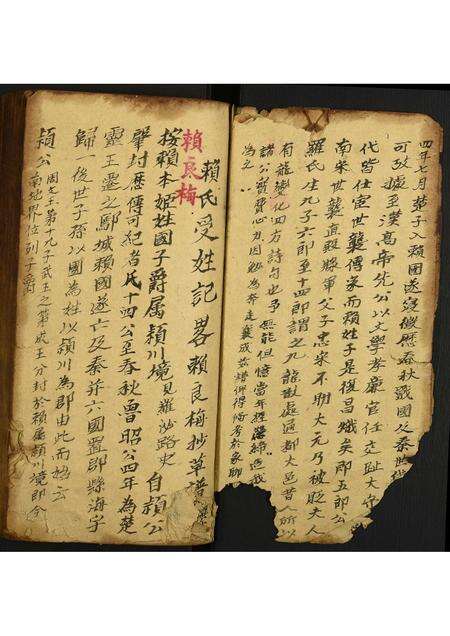 四年七月楚子入賴國遂寢微歷春秋戰國之秦時
可攷據至漢高帝先公以文學孝廉官任交趾大守
代皆仕宦世襲傳家而賴姓子是復昌熾矣即五郎公
南宋世襲直殿將軍父子忠宋不明大元乃被貶夫人
羅氏生九子六郎至十四郎謂之九龍獻處通都大邑昔人所以
有龍變化四方詩句也予無能但憶當年
諸公前費心力因勉為奔走襄成
為之
賴氏受姓記畧賴良梅抄草譜
賴良梅
按賴本姬姓國子爵属潁川境見羅沙路史自潁公
肇封歷傳可紀者民十四公至春秋魯昭公四年為楚
靈王遷之鄢城賴國遂亡及秦并六國置郡縣海宇
歸一後世子孫以國為姓以潁川為郡由此而始云
潁公周文王第九子武王之弟成王分封於賴属潁川境即今
南地界位列子爵